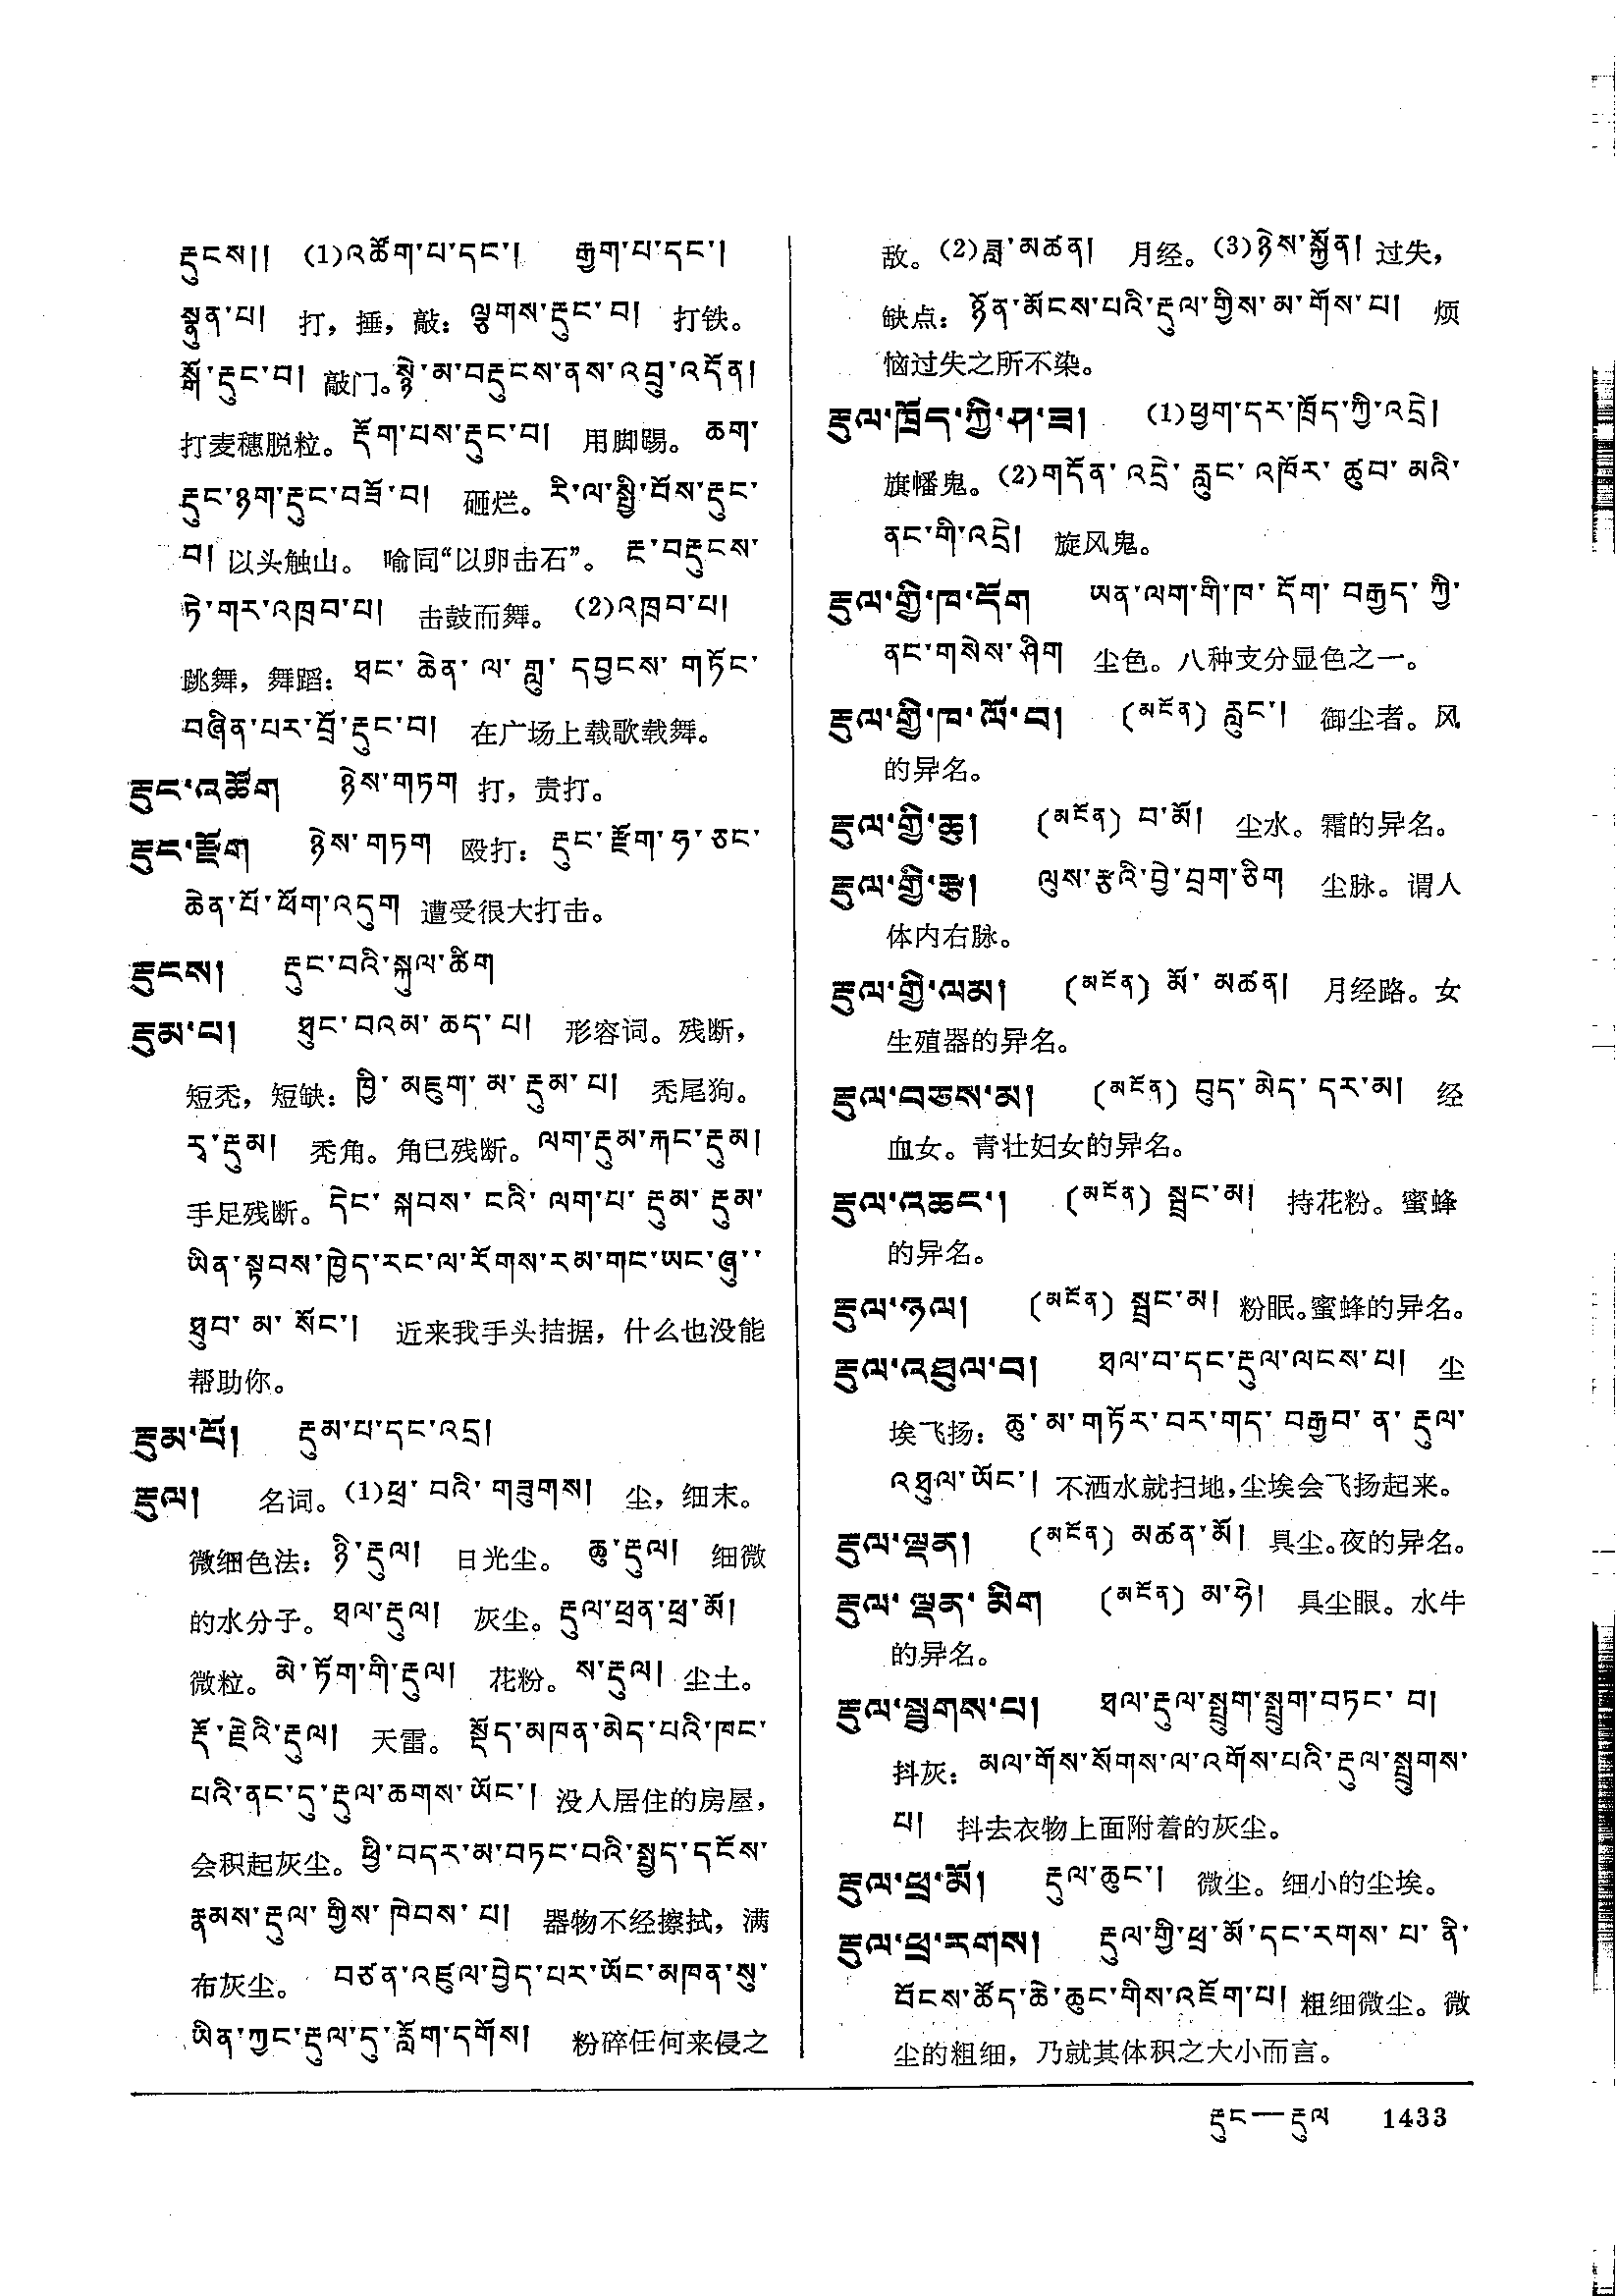 རྡུངས།། (1)འཚོག་པ་དང་། རྒྱག་པ་དང་།
སྣུན་པ། 打，捶，敲：ལྕགས་རྡུང་བ། 打铁。
སྒོ་རྡུང་བ། 敲门。སྙེ་མ་བརྡུངས་ནས་འབྲུ་འདོན།
打麦穗脱粒。རྡོག་པས་རྡུང་བ། 用脚踢。ཆག་
རྡུང་ཉག་རྡུང་བཟོ་བ། 砸烂。རི་ལ་སྤྱི་བོས་རྡུང་
བ། 以头触山。喻同“以卵击石”。རྔ་བརྡུངས་
ཏེ་གར་འཁྲབ་པ། 击鼓而舞。(2)འཁྲབ་པ།
跳舞，舞蹈：ཐང་ཆེན་ལ་གླུ་དབྱངས་གཏོང་
བཞིན་པར་བྲོ་རྡུང་བ། 在广场上载歌载舞。
རྡུང་འཚོག ཉེས་གཏག 打，责打。
རྡུང་རྫོག ཉེས་གཏག 殴打：རྡུང་རྫོག་ཧ་ཅང་
ཆེན་པོ་ཕོག་འདུག 遭受很大打击。
རྡུངས། རྡུང་བའི་སྐུལ་ཚིག
རྡུམ་པ། ཐུང་བའམ་ཆད་པ། 形容词。残断，
短秃，短缺：ཁྱི་མཇུག་མ་རྡུམ་པ། 秃尾狗。
རྭ་རྡུམ། 秃角。角已残断。ལག་རྡུམ་རྐང་རྡུམ།
手足残断。དེང་སྐབས་ངའི་ལག་པ་རྡུམ་རྡུམ་
ཡིན་སྟབས་ཁྱེད་རང་ལ་རོགས་རམ་གང་ཡང་ཞུ་
ཐུབ་མ་སོང་། 近来我手头拮据，什么也没能
帮助你。
རྡུམ་པོ། རྡུམ་པ་དང་འདྲ།
རྡུལ། 名词。(1)ཕྲ་བའི་གཟུགས། 尘，细末。
微细色法：ཉི་རྡུལ། 日光尘。ཆུ་རྡུལ། 细微
的水分子。ཐལ་རྡུལ། 灰尘。རྡུལ་ཕྲན་ཕྲ་མོ།
微粒。མེ་ཏོག་གི་རྡུལ། 花粉。ས་རྡུལ། 尘土。
རྡོ་རྗེའི་རྡུལ། 天雷。སྡོད་མཁན་མེད་པའི་ཁང་
པའི་ནང་དུ་རྡུལ་ཆགས་ཡོང་། 没人居住的房屋，
会积起灰尘。ཕྱི་བདར་མ་བཏང་བའི་སྤྱད་དངོས་
རྣམས་རྡུལ་གྱིས་ཁེབས་པ། 器物不经擦拭，满
布灰尘。བཙན་འཛུལ་བྱེད་པར་ཡོང་མཁན་སུ་
ཡིན་ཀྱང་རྡུལ་དུ་རློག་དགོས། 粉碎任何来侵之
敌。(2)ཟླ་མཚན། 月经。(3)ཉེས་སྐྱོན། 过失，
缺点：ཉོན་མོངས་པའི་རྡུལ་གྱིས་མ་གོས་པ། 烦
恼过失之所不染。
རྡུལ་ཁྲོད་ཀྱི་ཤ་ཟ། (1)ཕྱག་དར་ཁྲོད་ཀྱི་འདྲེ།
旗幡鬼。(2)གདོན་འདྲེ་རླུང་འཁོར་ཚུབ་མའི་
ནང་གི་འདྲེ། 旋风鬼。
རྡུལ་གྱི་ཁ་དོག ཡན་ལག་གི་ཁ་དོག་བརྒྱད་ཀྱི་
ནང་གསེས་ཤིག 尘色。八种支分显色之一。
རྡུལ་གྱི་ཁ་ལོ་བ། (མངོན) རླུང་། 御尘者。风
的异名。
རྡུལ་གྱི་ཆུ། (མངོན) བ་མོ། 尘水。霜的异名。
རྡུལ་གྱི་རྩ། ལུས་རྩའི་བྱེ་བྲག་ཅིག 尘脉。谓人
体内右脉。
རྡུལ་གྱི་ལམ། (མངོན) མོ་མཚན། 月经路。女
生殖器的异名。
རྡུལ་བཅས་མ། (མངོན) བུད་མེད་དར་མ། 经
血女。青壮妇女的异名。
རྡུལ་འཆང་། (མངོན) སྦྲང་མ། 持花粉。蜜蜂
的异名。
རྡུལ་ཉལ། (མངོན) སྦྲང་མ། 粉眠。蜜蜂的异名。
རྡུལ་འཐུལ་བ། ཐལ་བ་དང་རྡུལ་ལངས་པ། 尘
埃飞扬：ཆུ་མ་གཏོར་བར་གད་བརྒྱབ་ན་རྡུལ་
འཐུལ་ཡོང་། 不洒水就扫地，尘埃会飞扬起来。
རྡུལ་ལྡན། (མངོན) མཚན་མོ། 具尘。夜的异名。
རྡུལ་ལྡན་མིག (མངོན) མ་ཧེ། 具尘眼。水牛
的异名。
རྡུལ་སྤྲུགས་པ། ཐལ་རྡུལ་སྤྲུག་སྤྲུག་བཏང་བ།
抖灰：མལ་གོས་སོགས་ལ་འགོས་པའི་རྡུལ་སྤྲུགས་
པ། 抖去衣物上面附着的灰尘。
རྡུལ་ཕྲ་མོ། རྡུལ་ཆུང་། 微尘。细小的尘埃。
རྡུལ་ཕྲ་རགས། རྡུལ་གྱི་ཕྲ་མོ་དང་རགས་པ་ནི་
བོངས་ཚོད་ཆེ་ཆུང་གིས་འཇོག་པ། 粗细微尘。微
尘的粗细，乃就其体积之大小而言。
རྡུང—རྡུལ 1433